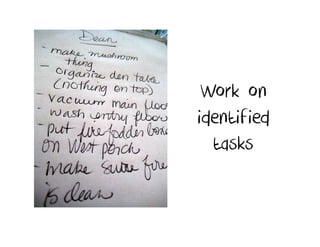 Dean
- make mushroom
thing
- organize den table
(nothing on top)
- vacuum main floor
- wash entry floor
- put fire fodder
on West porch
- make sure fire
is clean
Work on
identified
tasks